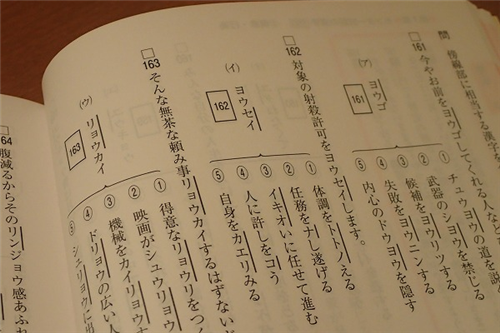 問 傍線部に相当する漢字
161 今やお前をヨウゴしてくれる人など
(ア) ヨウゴ
161
① チュウヨウの道を説
② 武器のシヨウを禁じる
③ 候補をヨウリツする
④ 失敗をヨウニンする
⑤ 内心のドウヨウを隠す
162 対象の射殺許可をヨウセイします。
(イ) ヨウセイ
162
① 体調をトトノえる
② 任務をナし遂げる
③ イキオいに任せて進む
④ 人に許しをコう
⑤ 自身をカエリみる
163 そんな無茶な頼み事リョウカイするはずない
(ウ) リョウカイ
163
① 得意なリョウリをつく
② 映画がシュウリョウ
③ 機械をカイリョウ
④ ドリョウの広い人
⑤ シュリョウに出
64 腹減るからそのリンジョウ感あふれ